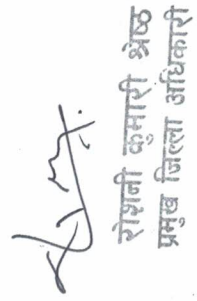 रोशनी कुमारी श्रेष्ठ
प्रमुख जिल्ला अधिकारी